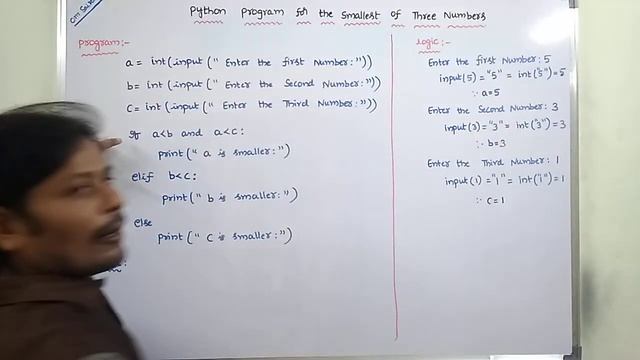 Python Program for the Smallest of Three Numbers
Program:-
a = int(input(" Enter the first Number:"))
b= int(input (" Enter the Second Number:"))
C= int(input(" Enter the Third Number:"))
If a<b and a<c:
print(" a is smaller:")
elif b<c:
print(" b is smaller:")
else
print(" c is smaller:")
Logic:-
Enter the first Number: 5
input(5) ="5" = int("5")=5
∴ a=5
Enter the Second Number: 3
input(3)="3"= int("3")=3
∴ b=3
Enter the Third Number: 1
input(1)="1"= int("1")=1
∴ c=1